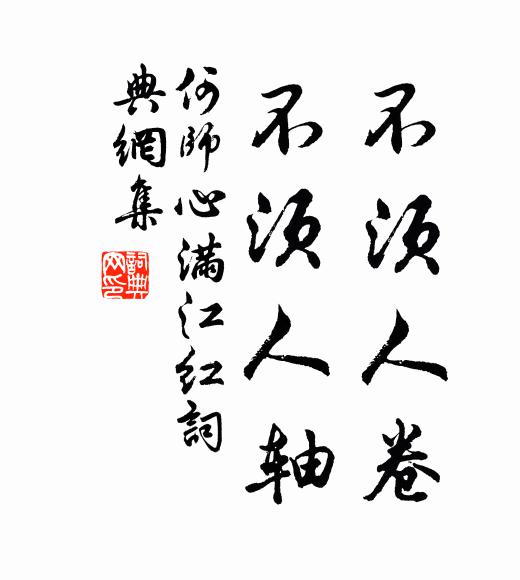 不須人卷
不須人軸
何師心滿江紅詞
典網集
詞典网印